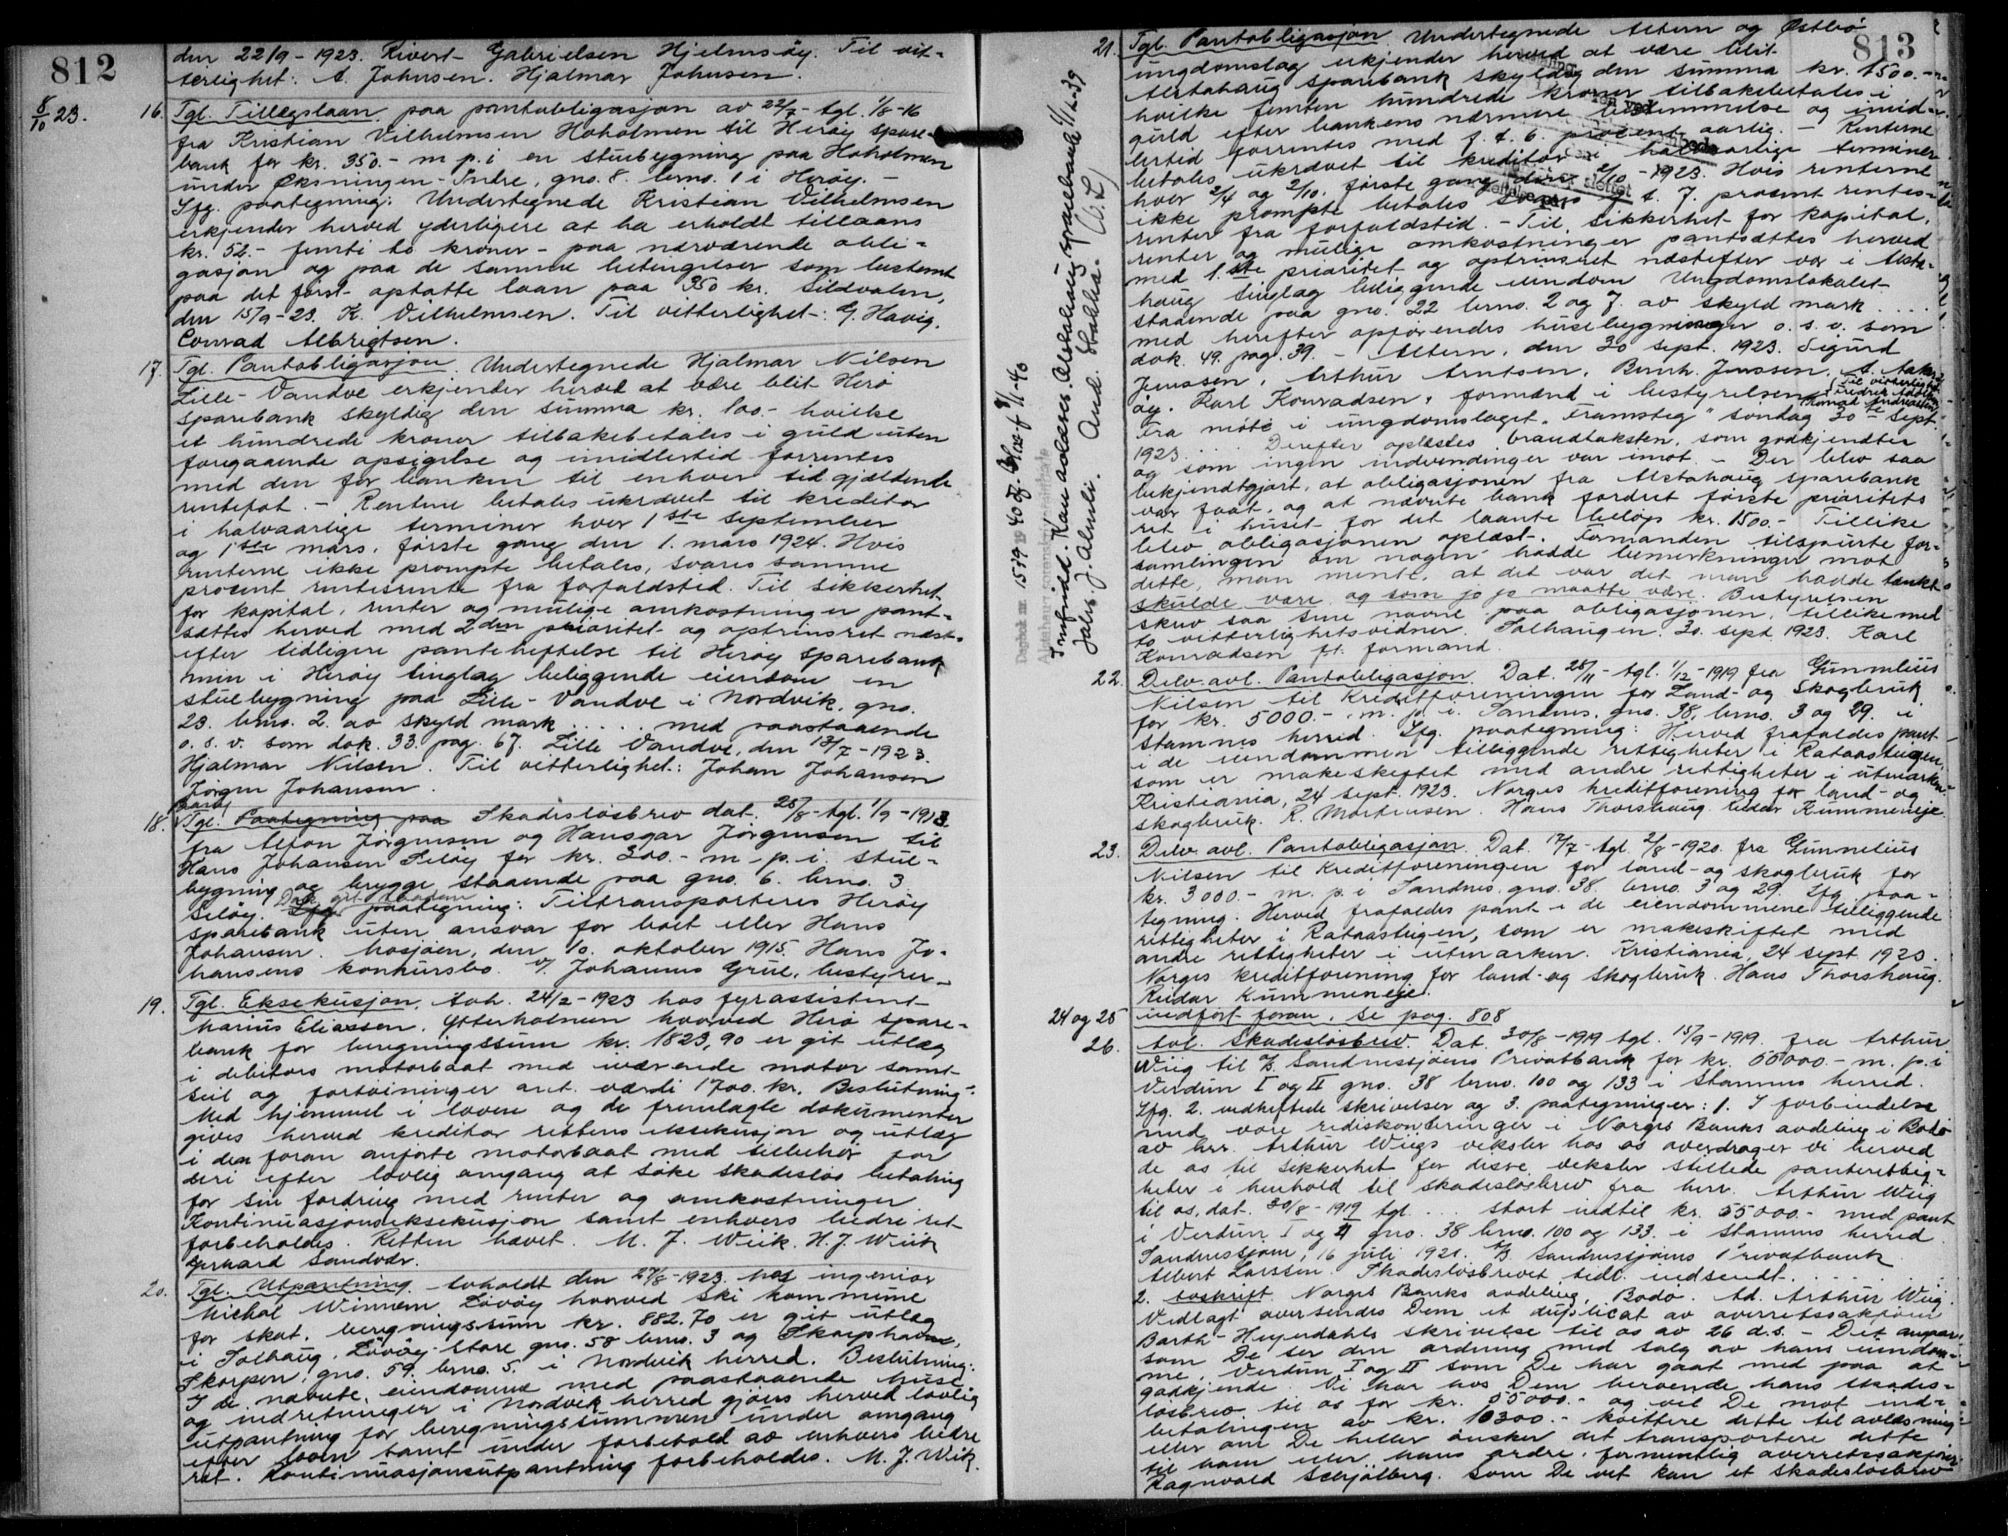 812
den 22/9 - 1923. Rivert Gabrielsen Hjelmsöy. Til vit-
terlighet: A. Johnsen. Hjalmar Johnsen.
8/10 23.
16. Tgl. Tillegslaan paa pantobligasjon av 22/7 - tgl. 1/8-16
fra Kristian Vilhelmsen Hoholmen til Heröy spare-
bank for kr. 350.- m. p. i en stuebygning paa Hoholmen
under Öksningen - Indre, gno. 8. brno. 1 i Heröy. -
Lfg. paategning: Undertegnede Kristian Vilhelmsen
erkjender herved yderligere at ha erholdt tillaans
kr. 52.- femti to kroner - paa nærværende obli-
gasjon og paa de samme betingelser som bestemt
paa det först optatte laan paa 350 kr. Sildvalen,
den 15/9 - 23. K. Vilhelmsen. Til vitterlighet: G. Havig.
Conrad Albrigtsen.
17. Tgl. Pantobligasjon. Undertegnede Hjalmar Nilsen
Lille - Vandve erkjender herved at være blit Herö
sparebank skyldig den summa kr. 100.- hvilke
et hundrede kroner tilbakebetales i guld uten
foregaaende opsigelse og imidlertid forrentes
med den for banken til enhver tid gjældende
rentefot. - Renterne betales ukrævet til kreditor
i halvaarlige terminer hver 1ste september
og 1ste mars, første gang den 1. mars 1924. Hvis
renterne ikke prompte betales, svares samme
prosent rentesrente fra forfaldstid. Til sikkerhet
for kapital, renter og mulige omkostninger pant-
sættes herved med 2den prioritet og optrinsret næst-
efter tidligere panteheftelse til Heröy sparebank
min i Heröy tinglag beliggende eiendom en
stuebygning paa Lille - Vandve i Nordvik, gno.
23. brno. 2. av skyld mark .... med paastaaende
o. s. v. som dok. 33. pag. 67. Lille Vandve, den 13/7 - 1923.
Hjalmar Nilsen. Til vitterlighet: Johan Johansen
Jörgen Johansen.
18. Tgl. Paategning paa Skadeslösbrev dat. 28/8 - tgl. 1/9 - 1913.
fra Alfon Jörgensen og Hansgar Jörgensen til
Hans Johansen Selöy for kr. 300.- m. p. i. stue-
bygning og brygge staaende paa gno. 6. brno. 3
Selöy. Lfg. paategning: Tiltransporteres Heröy
sparebank uten ansvar for boet eller Hans
Johansen. Mosjöen, den 10. oktober 1915. Hans Jo-
hansens konkursbo. v/ Johannes Grue, bestyrer.
19. Tgl. Eksekusjon, avh. 24/2 - 1923 hos fyrassistent
Marius Eliassen. Ytterholmen hvorved Herö spare-
bank for beregningssum kr. 1823,90 er git utlæg
i debitors motorbaat med iværende motor samt
seil og fortöininger ant. værdi 1700. kr. Beslutning:
Med hjemmel i loven og de fremlagte dokumenter
gives herved kreditor rettens eksekusjon og utlæg
i den foran anförte motorbaat med tilbehör for
deri efter lovlig omgang at söke skadeslös betaling
for sin fordring med renter og omkostninger
Kontinuasjonseksekusjon samt enhvers bedre ret
forbeholdes. Retten hævet. M. J. Wiik. H. J. Wiik
Gerhard Sandvær.
20. Tgl. Utpantning avholdt den 27/8 - 1923. hos ingeniör
Michal Winnem, Lövöy hvorved Ski kommune
for skat, beregningssum kr. 882.70 er git utlæg
i Solhaug, Lövöy-Store gno. 58 brno. 3 og Skarphavn,
Skorpen, gno. 59. brno. 5. i Nordvik herred. Beslutning:
I de nævnte eiendomme med paastaaende huse
og indretninger i Nordvik herred gjöres herved lovlig
utpantning for beregningssummen under omgang
efter loven samt under forbehold av enhvers bedre
ret. Kontinuasjonsutpantning forbeholdes. M. J. Wiik.
Dagbok nr. 1579 1940
Innfridd. Kan avlæses. Alstahaug sparebank 11/12-39
Johs. J. Almli. And. Hokka. (O.L)
813
21. Tgl. Pantobligasjon Undertegnede Altern og Östbö
ungdomslag erkjender herved at være blit
Alstahaug sparebank skyldig den summa kr. 1500.-
hvilke femten hundrede kroner tilbakebetales i
guld efter bankens nærmere bestemmelse og imid-
lertid forrentes med f. t. 6. procent aarlig. - Renterne
betales ukrævet til kreditor i halvaarlige terminer
hver 2/4 og 2/10, förste gang den 2/10 - 1923. Hvis renterne
ikke prompte betales svares f. t. 7. prosent rentes-
renter fra forfaldstid. - Til sikkerhet for kapital,
renter og mulige omkostninger pantsættes herved
med 1ste prioritet og optrinsret næstefter vor i Alsta-
haug tinglag beliggende eiendom Ungdomslokalet
staaende paa gno. 22 brno. 2 og 7. av skyld mark ....
med herefter opförendes husebygninger o. s. v. som
dok. 49. pag. 39. - Altern, den 30 sept. 1923. Sigurd
Jenssen, Arthur Arntsen, Bernh. Jenssen, A. Aaker-
öy. Karl Konradsen, formand i bestyrelsen.
Fra möte i ungdomslaget "Framsteg" söndag 30te sept.
1923 .... Derefter oplæstes brandtaksten, som godkjendtes
og som ingen indvendinger var imot. - Der blev saa
bekjendtgjort, at obligasjonen fra Alstahaug sparebank
var faat, og at nævnte bank fordret förste prioritets
ret i huset for det laante belöp kr. 1500.- Tillike
blev obligasjonen oplæst. Formanden tilspurte for-
samlingen om nogen hadde bemerkninger mot
dette, man mente, at det var det man hadde tænkt
skulde være og som jo jo maatte være. Bestyrelsen
skrev saa sine navne paa obligasjonen, tillikemed
to vitterlighetsvidner. Solhaugen, 30. sept 1923. Karl
Konradsen p.t. formand.
22. Delv. avl. Pantobligasjon. Dat. 28/11 - tgl. 1/12 - 1919 fra Gunnelius
Nilsen til Kreditforeningen for Land- og Skogbruk
for kr. 5000.- m. p. i. Sandnes, gno. 38, brno. 3 og 29. i
Stamnes herred. Lfg. paategning: Herved frafaldes pant
i de eiendommen tilliggende rettigheter i Rataasteigen,
som er makeskiftet med andre rettigheter i utmarken.
Kristiania, 24 sept. 1923. Norges kreditforening for land- og
skogbruk. R. Mortensen. Hans Thorshaug. Reidar Kummeneje.
23. Delv. avl. Pantobligasjon. Dat. 17/7 - tgl. 2/8 - 1920. fra Gunnelius
Nilsen til Kreditforeningen for land- og skogbruk for
kr. 3000.- m. p. i Sandnes. gno. 38. brno. 3 og 29. Lfg. paa-
tegning: Herved frafaldes pant i de eiendommene tilliggende
rettigheter i Rataasteigen, som er makeskiftet med
andre rettigheter i utmarken. Kristiania, 24 sept. 1923.
Norges kreditforening for land- og skogbruk. Hans Thorshaug.
Reidar Kummeneje.
24 og 25 indfört foran, se pag. 808
26. Avl. Skadeslösbrev. Dat. 30/8 - 1919 tgl. 15/9 - 1919. fra Arthur
Wiig til A/S. Sandnessjöens Privatbank for kr. 55000.- m. p. i
Verdun I og II gno. 38 brno. 100 og 133 i Stamnes herred.
Lfg. 2. vedheftede skrivelser og 3. paategninger: 1. I forbindelse
med vore rediskonteringer i Norges Banks avdeling i Bodö
av herr. Arthur Wiigs veksler hos os overdrager vi herved
de os til sikkerhet for disse veksler stillede panterettig-
heter i henhold til skadeslösbrev fra herr. Arthur Wiig
til os, dat. 30/8 - 1919 tgl ... stort indtil kr. 55000.- med pant
i Verdun I og II gno. 38 brno. 100 og 133. i Stamnes herred.
Sandnessjöen, 16 juli 1921. A/S Sandnessjöens Privatbank
Albert Larssen. Skadeslösbrevet tidl. indsendt. ....
2. Avskrift. Norges Banks avdeling, Bodö. Ad. Arthur Wiig.
Vedlagt oversendes Dem et duplicat av overretssakförer
Barth-Heyerdahls skrivelse til os av 26 d.s. - Det angaar
som De ser den ordning med salg av hans eiendom-
me, Verdun I og II som De har gaat med paa at
godkjende. Vi har hos Dem beroende hans skades-
lösbrev til os for kr. 55000.- og vil De mot ind-
betalingen av kr. 10300.- kvittere dette til avlæsning
eller om De heller önsker det transportere dette
til ham eller hans ordre, formentlig overretssakförer
Ragnvald Schjölberg. Som De vet kan et skadeslösbrev